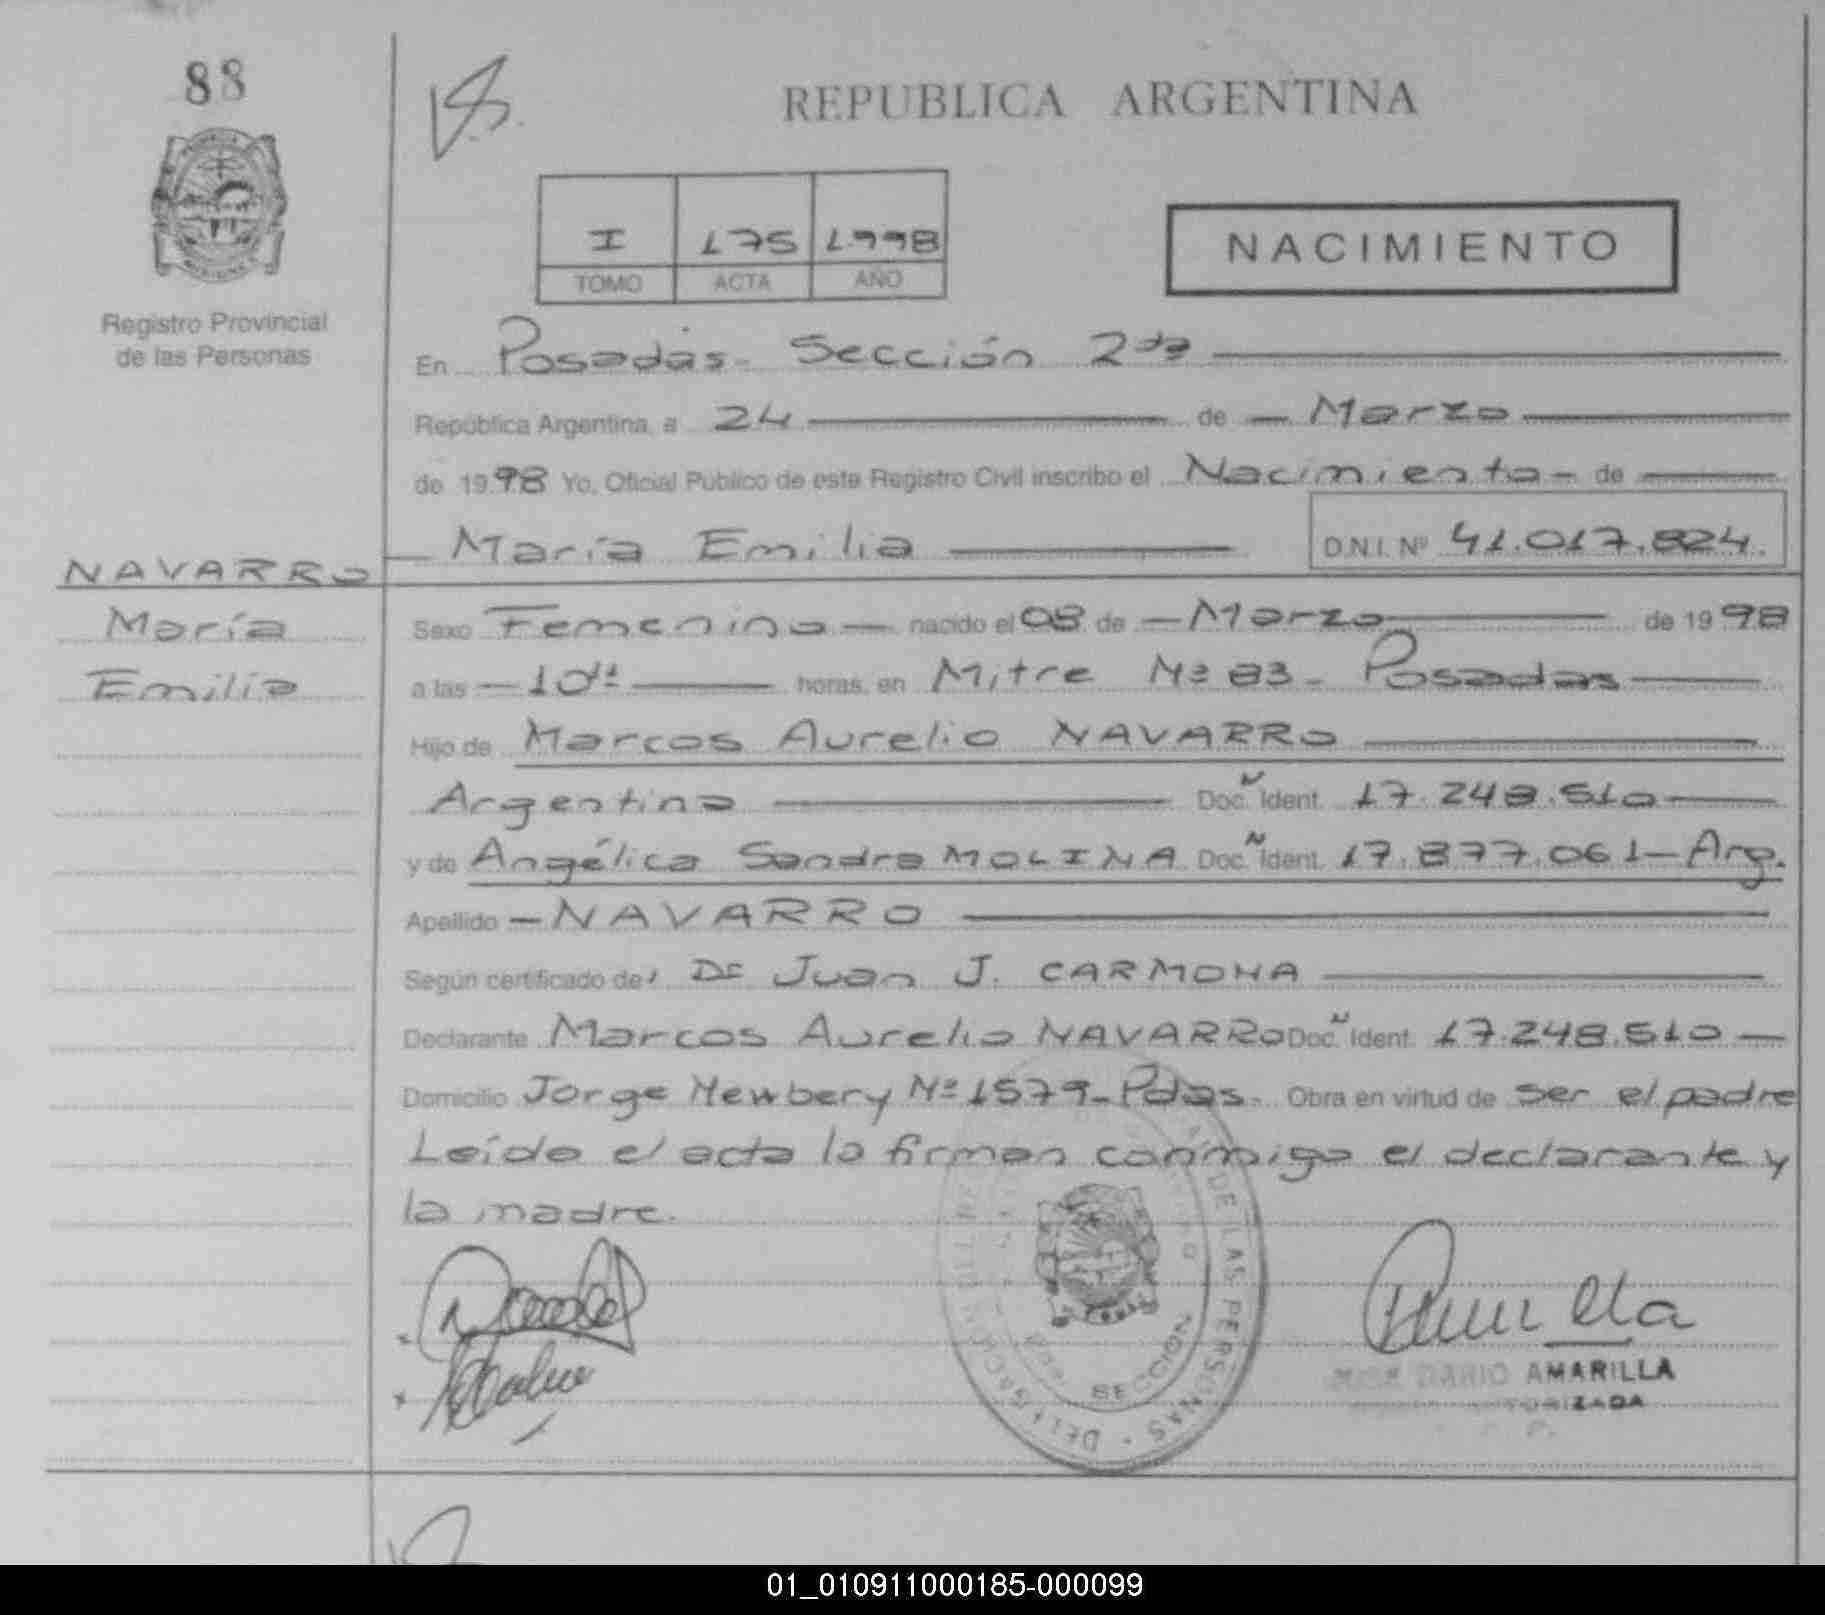 88
REPUBLICA ARGENTINA
I 175 1998
TOMO ACTA AÑO
NACIMIENTO
Registro Provincial
de las Personas
En Posadas- Sección 2da
República Argentina, a 24 de - Marzo
de 1998 Yo, Oficial Público de este Registro Civil inscribo el Nacimiento - de
María Emilia D.N.I. Nº 41.017.824.
NAVARRO
María
Emilia
Sexo Femenino - nacido el 08 de - Marzo de 1998
a las - 10hs horas, en Mitre Nº 83 - Posadas
Hijo de Marcos Aurelio NAVARRO
Argentino Doc. Ident. 17.248.510
y de Angélica Sandra MOLINA Doc. Ident. 17.877.061 - Arg.
Apellido - NAVARRO
Según certificado de: Dr Juan J. CARMONA
Declarante Marcos Aurelio NAVARRO Doc. Ident. 17.248.510 -
Domicilio Jorge Newbery Nº 1579 - Pdas. Obra en virtud de ser el padre
Leída el acta la firman conmigo el declarante y
la madre.
DE LAS PERSONAS - DELEGACION
SECCION
DARIO AMARILLA
01_010911000185-000099